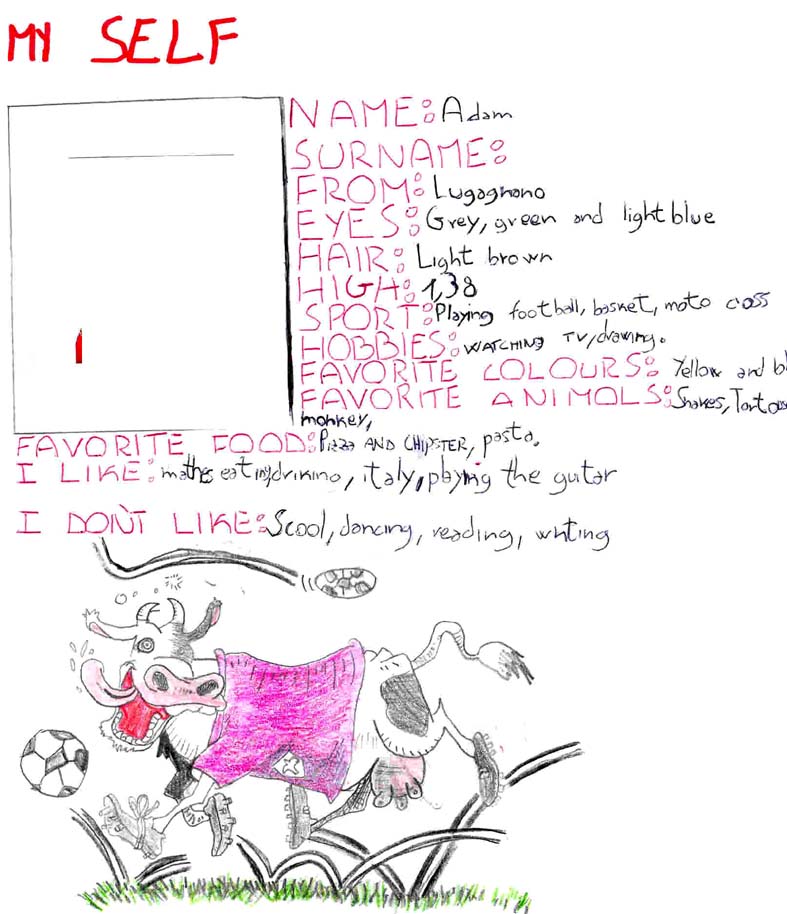 MY SELF
NAME: Adam
SURNAME:
FROM: Lugagnano
EYES: Grey, green and light blue
HAIR: Light brown
HIGH: 1,38
SPORT: Playing football, basket, moto cross
HOBBIES: WATCHING TV, drawing.
FAVORITE COLOURS: Yellow and
FAVORITE ANIMOLS: Snakes,
monkey,
FAVORITE FOOD: Pizza AND CHIPSTER, pasta.
I LIKE: maths eating, drinking, italy, playing the guitar
I DON'T LIKE: Scool, dancing, reading, writing